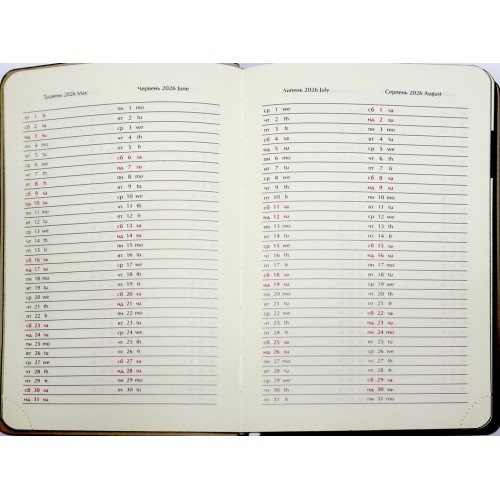 Травень 2026 May
пт 1 fr
сб 2 sa
нд 3 su
пн 4 mo
вт 5 tu
ср 6 we
чт 7 th
пт 8 fr
сб 9 sa
нд 10 su
пн 11 mo
вт 12 tu
ср 13 we
чт 14 th
пт 15 fr
сб 16 sa
нд 17 su
пн 18 mo
вт 19 tu
ср 20 we
чт 21 th
пт 22 fr
сб 23 sa
нд 24 su
пн 25 mo
вт 26 tu
ср 27 we
чт 28 th
пт 29 fr
сб 30 sa
нд 31 su
Червень 2026 June
пн 1 mo
вт 2 tu
ср 3 we
чт 4 th
пт 5 fr
сб 6 sa
нд 7 su
пн 8 mo
вт 9 tu
ср 10 we
чт 11 th
пт 12 fr
сб 13 sa
нд 14 su
пн 15 mo
вт 16 tu
ср 17 we
чт 18 th
пт 19 fr
сб 20 sa
нд 21 su
пн 22 mo
вт 23 tu
ср 24 we
чт 25 th
пт 26 fr
сб 27 sa
нд 28 su
пн 29 mo
вт 30 tu
Липень 2026 July
ср 1 we
чт 2 th
пт 3 fr
сб 4 sa
нд 5 su
пн 6 mo
вт 7 tu
ср 8 we
чт 9 th
пт 10 fr
сб 11 sa
нд 12 su
пн 13 mo
вт 14 tu
ср 15 we
чт 16 th
пт 17 fr
сб 18 sa
нд 19 su
пн 20 mo
вт 21 tu
ср 22 we
чт 23 th
пт 24 fr
сб 25 sa
нд 26 su
пн 27 mo
вт 28 tu
ср 29 we
чт 30 th
пт 31 fr
Серпень 2026 August
сб 1 sa
нд 2 su
пн 3 mo
вт 4 tu
ср 5 we
чт 6 th
пт 7 fr
сб 8 sa
нд 9 su
пн 10 mo
вт 11 tu
ср 12 we
чт 13 th
пт 14 fr
сб 15 sa
нд 16 su
пн 17 mo
вт 18 tu
ср 19 we
чт 20 th
пт 21 fr
сб 22 sa
нд 23 su
пн 24 mo
вт 25 tu
ср 26 we
чт 27 th
пт 28 fr
сб 29 sa
нд 30 su
пн 31 mo